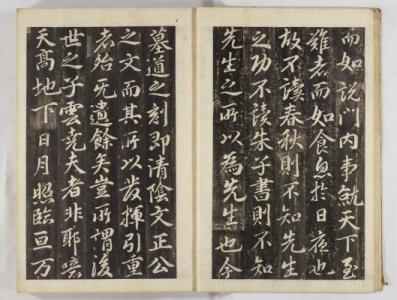 而如說門內事觑天下至
難者而如食息於日夜也
故不讀春秋則不知先生
之功不讀朱子書則不知
先生之所以為先生也今
墓道之刻即清陰文正公
之文而其所以發揮引重
者殆无遺餘矣豈所謂後
世之子雲堯夫者非耶噫
天高地下日月照臨亘万